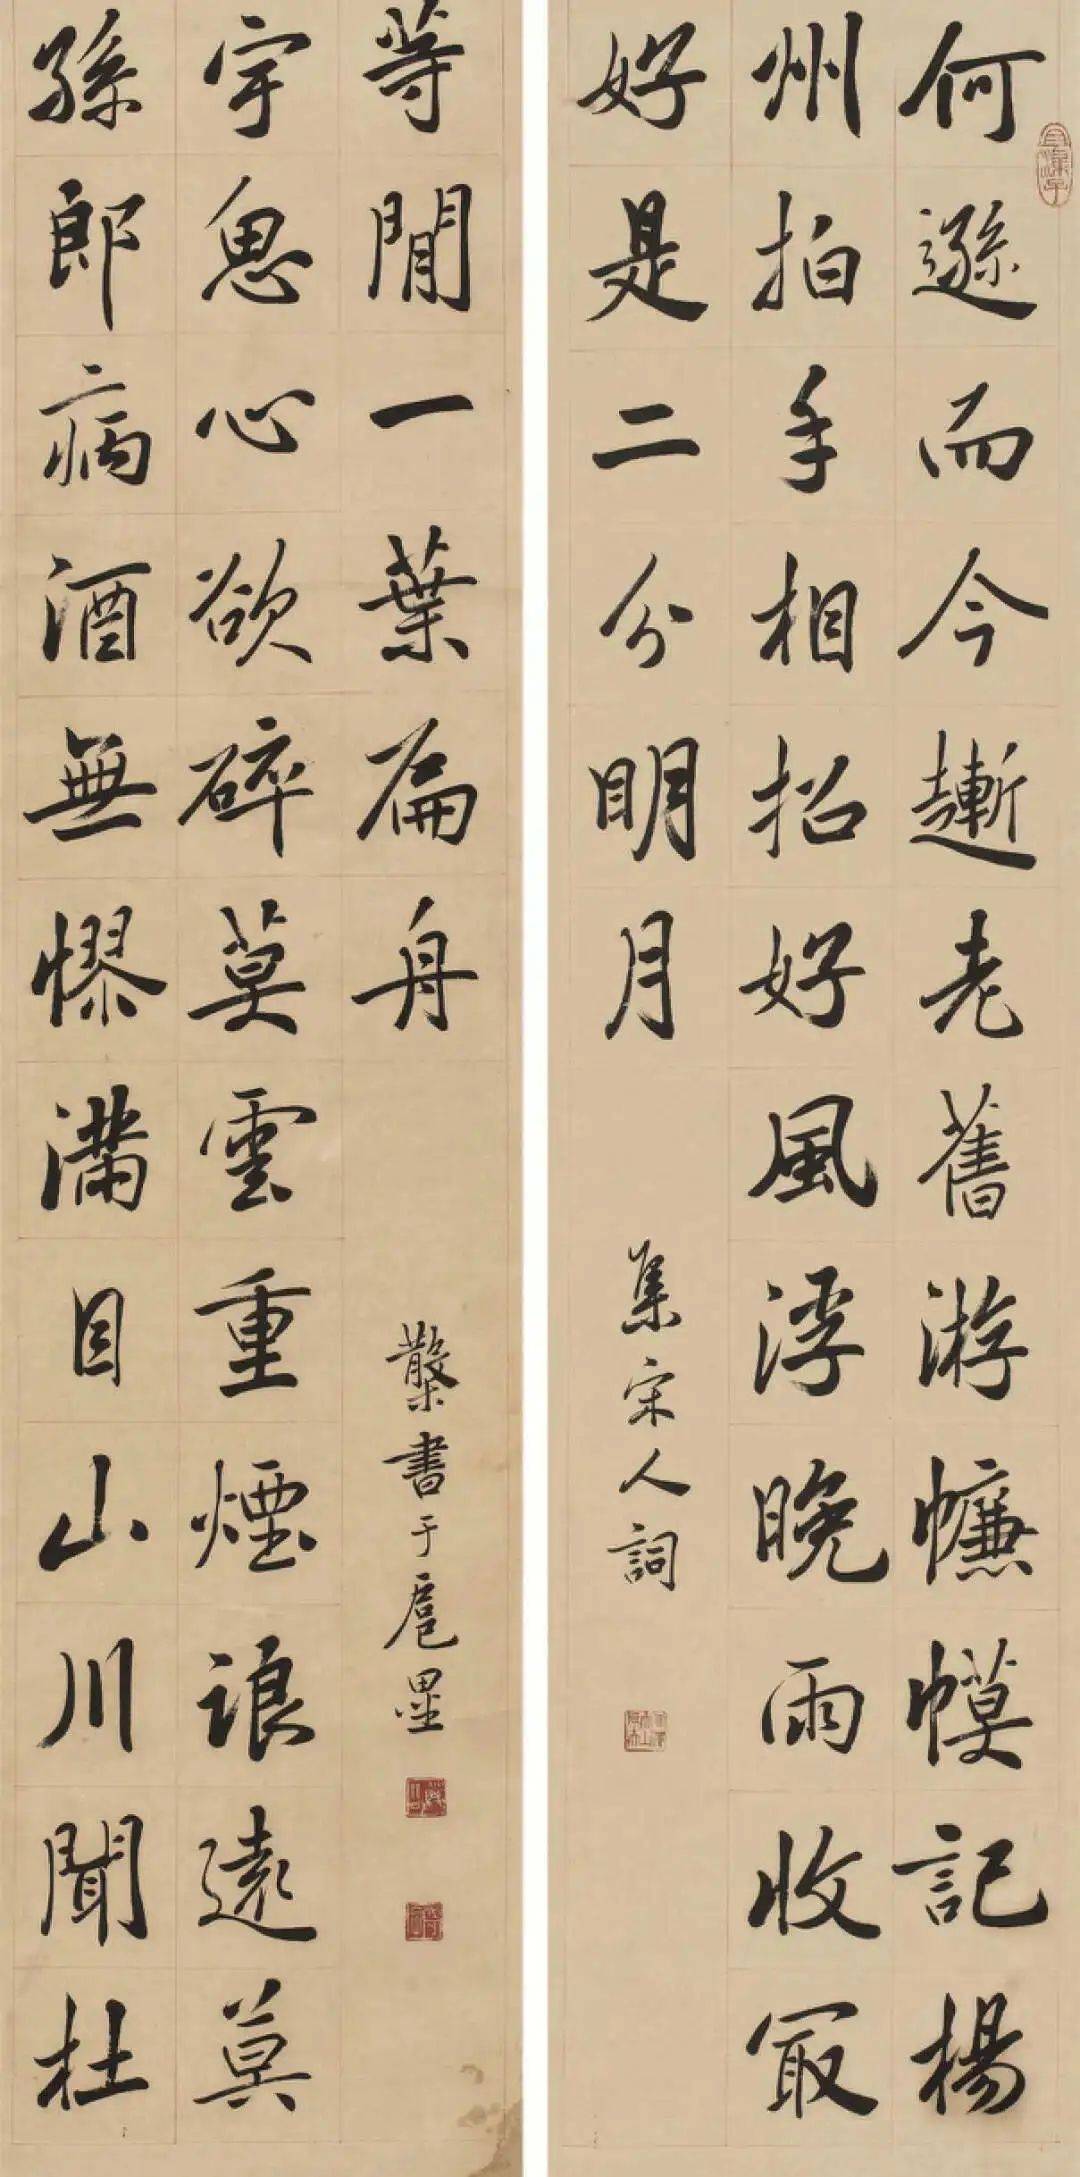 何遜而今漸老舊游㡘幙記楊
州拍手相招好風浮晚雨收冣
好是二分明月
集宋人詞
孫郎病酒無憀滿目山川聞杜
宇恖心欲碎莫雲重煙浪遠莫
等閒一葉扁舟
書于扈